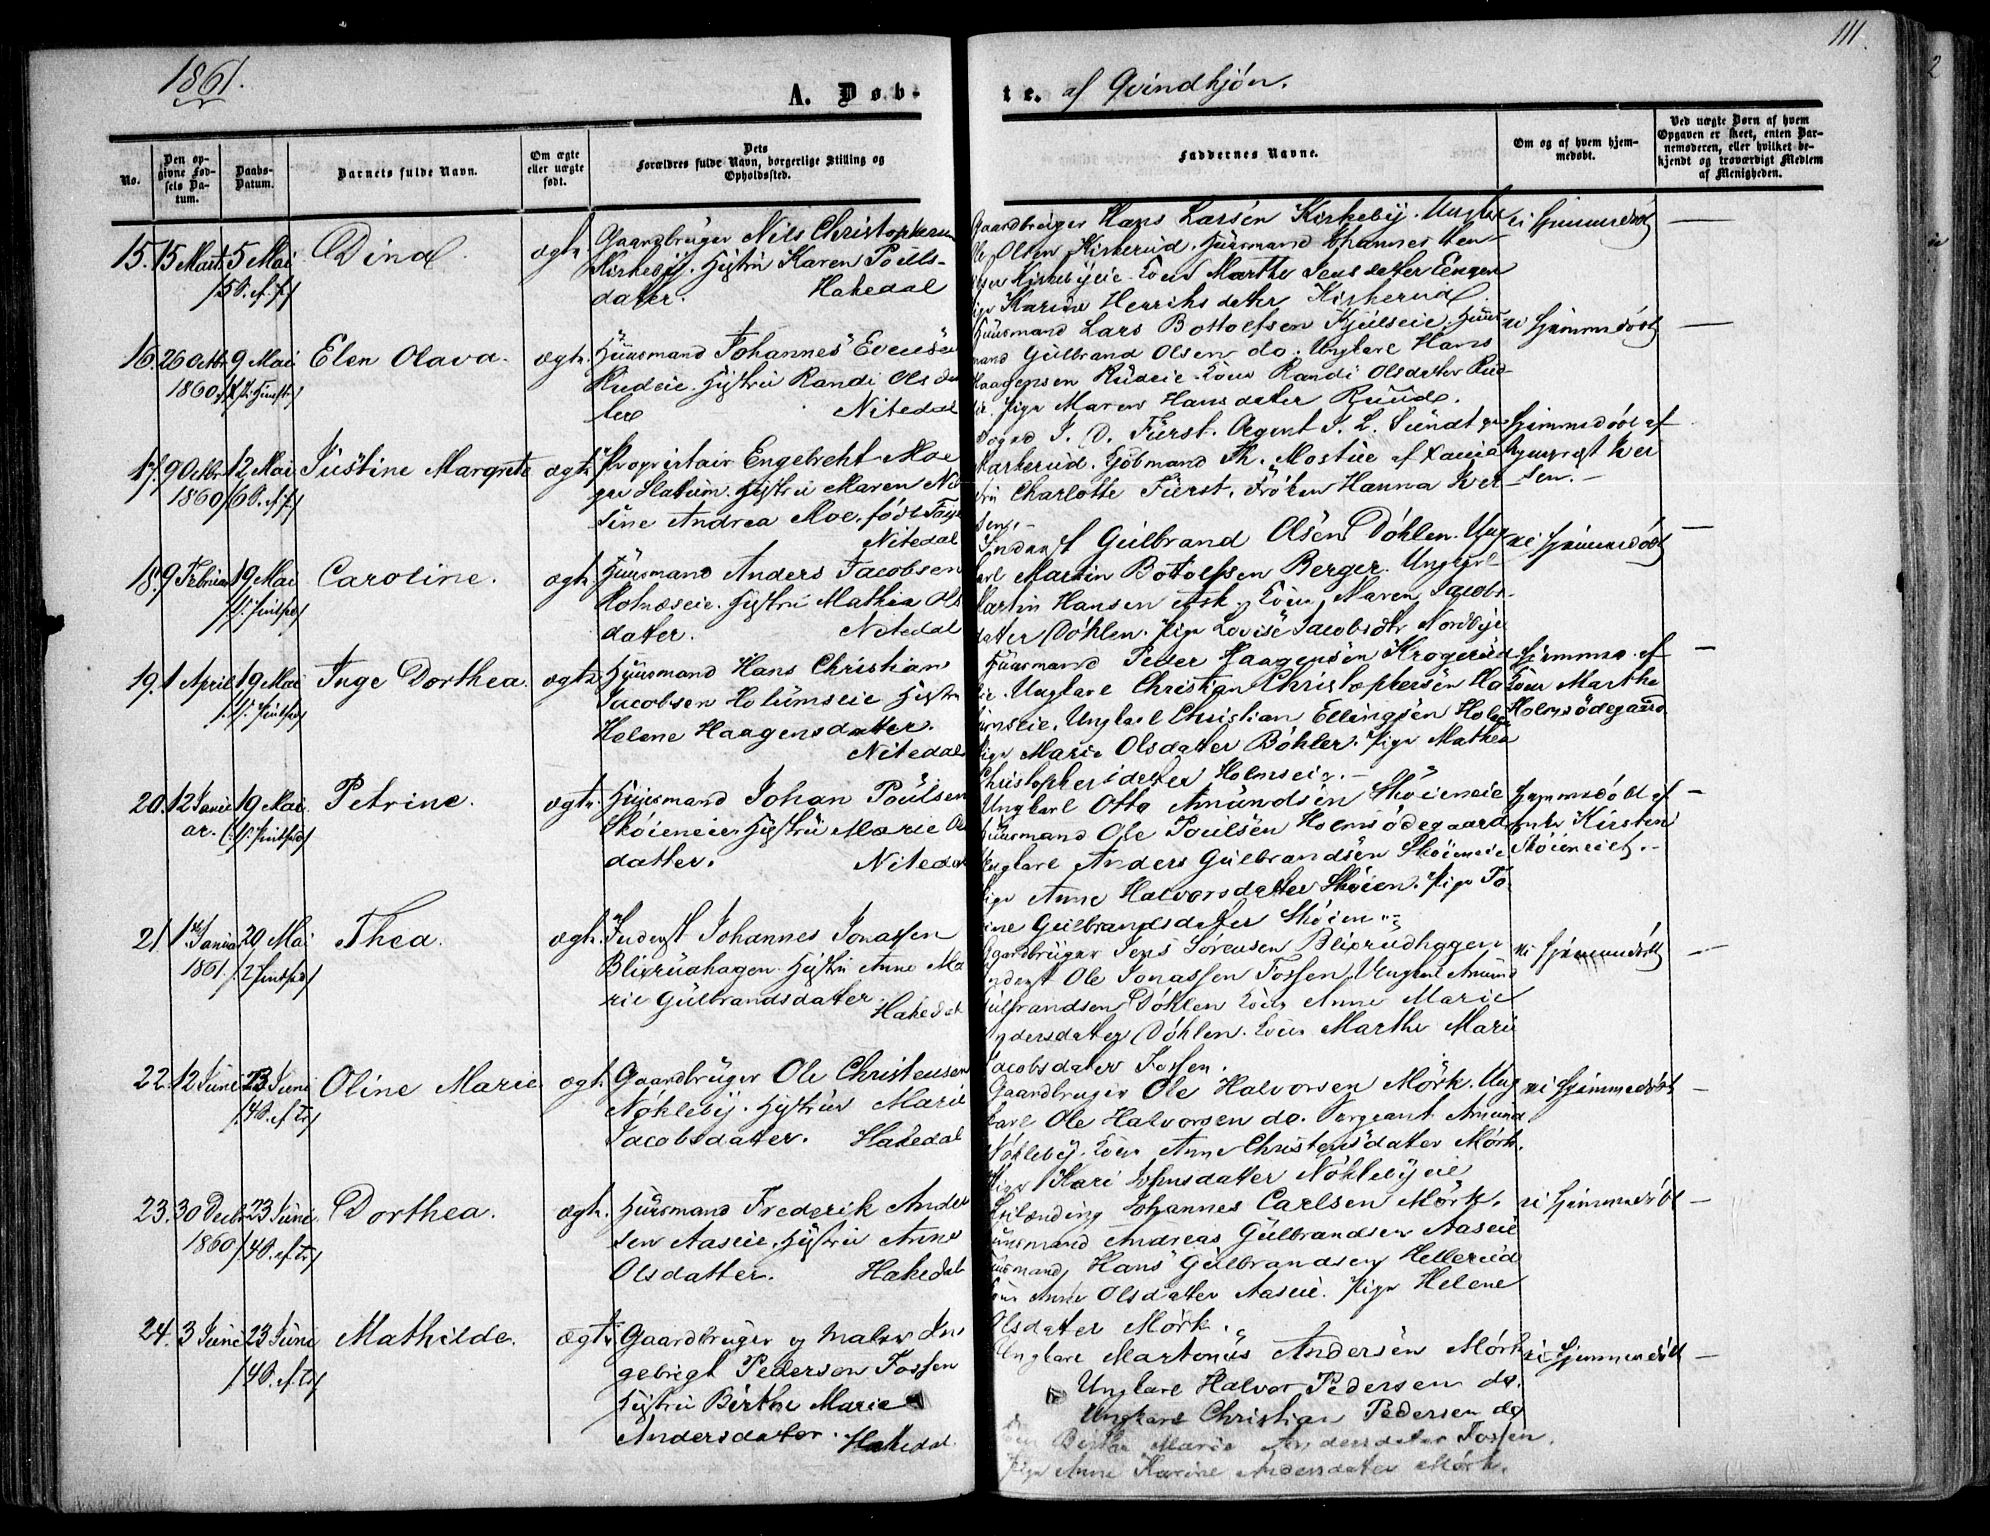 1861.
111.
A. Døb-
te. af Qvindkjøn.
No.
Den op-
givne Fød-
sels Da-
tum.
Daabs-
Datum.
Barnets fulde Navn.
Om ægte
eller uægte
født.
Dets
Forældres fulde Navn, borgerlige Stilling og
Opholdssted.
Faddernes Navne.
Om og af hvem hjem-
medøbt.
Ved uægte Børn af hvem
Opgaven er skeet, enten Bar-
nemoderen, eller hvilket be-
kjendt og troværdigt Medlem
af Menigheden.
15. 15 Marts 5 Mai Dina. ægte.
Gaardbruger Nils Christophersen
Kirkeby. Hustru Karen Pouls-
dater. Hakedal
Gaardbruger Hans Larsen Kirkeby. Ungkar
Ole Olsen Kirkerud. Huusmand Johannes Hen-
Kirkebyeie. Kone Marthe Jensdater Engen
Pige Karine Henriksdater Kirkerud.
ei hjemmedøbt
16. 26 Octbr 1860 9 Mai Elen Olava. ægte.
Huusmand Johannes Evensen
Rudeie. Hustru Randi Olsda-
ter Nitedal
Huusmand Lars Bottolfsen Kjulseie. Huus-
mand Gulbrand Olsen do. Ungkarl Hans
Haagensen Rudeie. Kone Randi Olsdater Rud-
eie. Pige Maren Hansdater Ruud.
ei hjemmedøbt
17. 9 Octbr 1860 12 Mai Justine Margrete ægte
Proprietair Engebreth Moe
Slatum. Hustru Maren Ni-
sine Andrea Moe, født
Nitedal
Foged J. D. Fürst. Agent J. L. Sundt
Markerud. Kjøbmand Th. Mostue af Xania
Fru Charlotte Fürst. Frøken Hanna Iver-
sen.
hjemmedøbt af
Iver-
sen.
18. 9 Februar 19 Mai Caroline. ægte.
Huusmand Anders Jacobsen
Holmseie. Hustru Mathia Ols-
dater. Nitedal
Inderst Gulbrand Olsen Døhlen. Ung-
karl Martin Bottolfsen Berger. Ungkarl
Martin Hansen Ask. Kone Maren Jacobs-
dater Døhlen. Pige Lovise Jacobsdtr Nordbye
ei hjemmedøbt
19. 1 April 19 Mai Inge Dorthea. ægte
Huusmand Hans Christian
Jacobsen Holumseie Hustru
Helene Haagensdatter.
Nitedal
Huusmand Peder Haagensen Krogerud-
eie. Ungkarl Christian Christophersen Ho-
lumseie. Ungkarl Christian Ellingsen Holm
Pige Marie Olsdater Bøhler. Pige Mathea
Christophersdatter Holmseie.
hjemmed. af
Kone Marthe
Holmsødegaard
20. 12 Janu-
ar. 19 Mai Petrine. ægte.
Huusmand Johan Poulsen
Skøieneie Hustru Marie Ols-
datter. Nitedal
Ungkarl Otto Amundsen Skøieneie
Huusmand Ole Poulsen Holmsødegaard
Ungkarl Anders Gulbrandsen Skøieneie
Pige Anne Halvorsdatter Skøien. Pige To-
rine Gulbrandsdatter Skøien
hjemmedøbt af
Enke Kirsten
Skøieneiet.
21. 1 Januar 1861. 20 Mai Thea. ægte.
Inderst Johannes Jonassen
Blixrudhagen. Hustru Anne Ma-
rie Gulbrandsdater.
Hakedal
Gaardbruger Jens Sørensen Blixrudhagen
Inderst Ole Jonassen Fossen. Ungkarl Amund
Gulbrandsen Døhlen. Kone Anne Marie
Andersdater Døhlen. Kone Marthe Marie
Jacobsdater Fossen.
ei hjemmedøbt
22. 12 Juni 23 Juni Oline Marie ægte.
Gaardbruger Ole Christensen
Nøkleby. Hustru Marie
Jacobsdater. Hakedal
Gaardbruger Ole Halvorsen Mørk. Ung-
karl Ole Halvorsen do. Sergeant Amund
Nøkleby. Kone Anne Christensdater Mørk.
Pige Kari Johnsdatter Nøklebyeie
ei hjemmedøbt
23. 30 Decbr 1860 23 Juni Dorthea. ægte.
Huusmand Frederik Ander-
sen Aaseie. Hustru Anne
Olsdatter. Hakedal
Selveiende Johannes Carlsen Mørk.
Huusmand Andreas Gulbrandsen Aaseie
Huusmand Hans Gulbrandsen Hellerud
Kone Anne Olsdater Aaseie. Pige Helene
Olsdater Mørk.
ei hjemmedøbt
24. 3 Juni 23 Juni Mathilde. ægte
Gaardbruger og Maler In-
gebrigt Pedersen Fossen
Hustru Birthe Marie
Andersdater. Hakedal.
Ungkarl Martinus Andersen Mørk
Ungkarl Halvor Pedersen do.
Ungkarl Christian Pedersen do
Kone Birthe Marie Andersdater Fossen.
Pige Anne Karine Andersdater Mørk.
ei hjemmedøbt